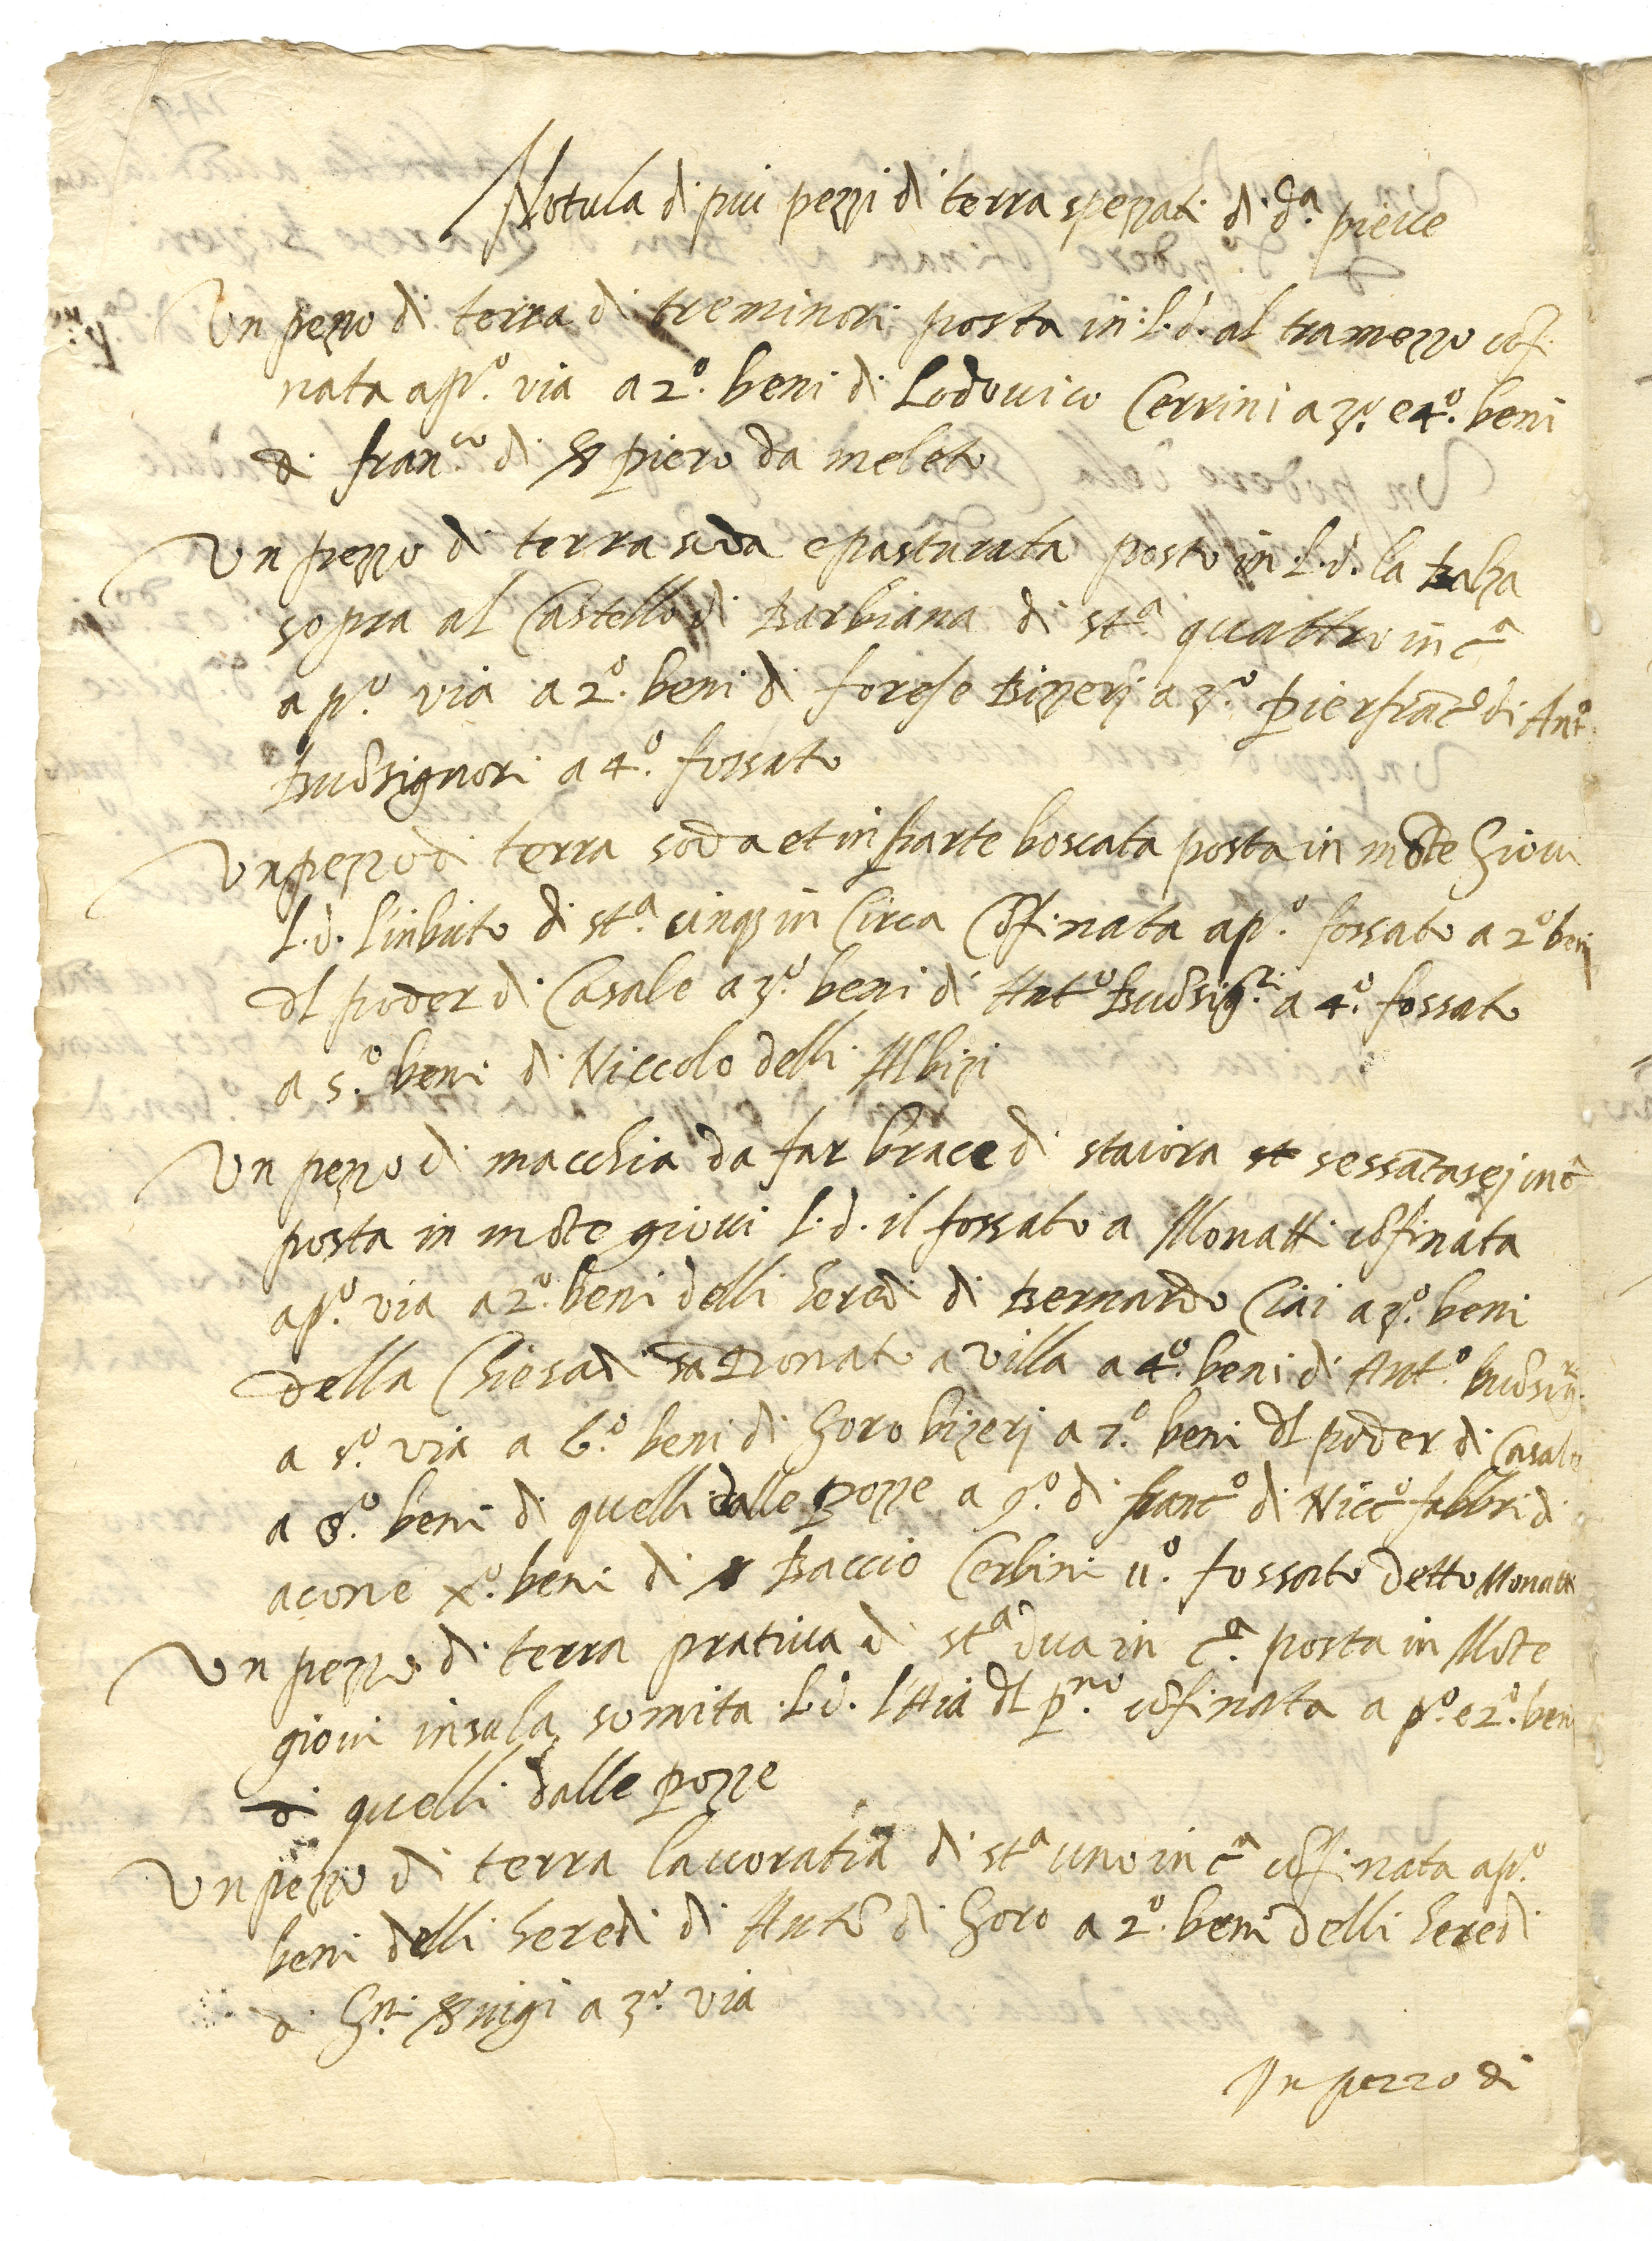 Notula di piu pezzi di terra spezzati di dª pieve
Un pezzo di terra di treminori posta in l.d. al tramezzo cōfi
nata a pº. via a 2º. beni di Lodovico Cerrini a 3º. e 4º. beni
di franco di ser piero da meleto
Un pezzo di terra soda e pasturata posto in l.d. la balza
sopra al Castello di Barbiana di stª quattro in cª
a pº. via a 2º. beni di forese Bizzerj a 3º. Pierfracº di Antº.
Buōsignori a 4º. fossato
Un pezzo di terra soda et in parte boscata posta in mōte Giovi
l.d. l'inbuto di stª. cinq3 in Circa Cōfinata a pº. fossato a 2º beni
dl poder di Casale a 3º. beni di Antº Buōsigri a 4º. fossato
a 5º. beni di Niccolo delli Albizi
Un pezzo di macchia da far brace di staiora sessātasej in c
posta in mōte giovi l.d. il fossato a Monatti cōfinata
a pº. via a 2º. beni delli heredi di Bernardo Ciai a 3º. beni
della Chiesa di sā Donato a villa a 4º. beni di Antº. buōsigri.
a 5º. via a 6º. beni di Goro bizerj a 7º. beni dl poder di Casale
a 8º. beni di quelli dalle Pozze a 9º. di francº di Niccº fabbri di
acone xº. beni di Baccio Cerbini 11º. fossato detto Monatti
Un pezzo di terra prativa di stª dua in cª. posta in Mōte
giovi insula somita l.d. l'Aia dl pno. cōfinata a pº. e 2º. beni
di quelli dalle Pozze
Un pezzo di terra lavoratia di stª uno in cª cōfinata a pº.
beni delli heredi di Antº di Goro a 2º. beni delli heredi
di a 3º. via
Un pezzo di